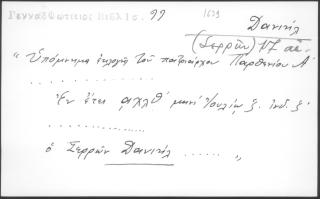 Γενναδ[...] Βιβλιο. 99 1639
Δανιήλ
(Σερρῶν) 17 αἰ.
" Ὑπόμνημα ἐκλογῆς τοῦ πατριάρχου Παρθενίου Α'
Ἐν ἔτει αχλθ' μηνί Ἰουλίῳ ξ. ἰνδ. ξ'
. . . . . . . . . . . . . . .
ὁ Σερρῶν Δανιήλ . . . . . . "